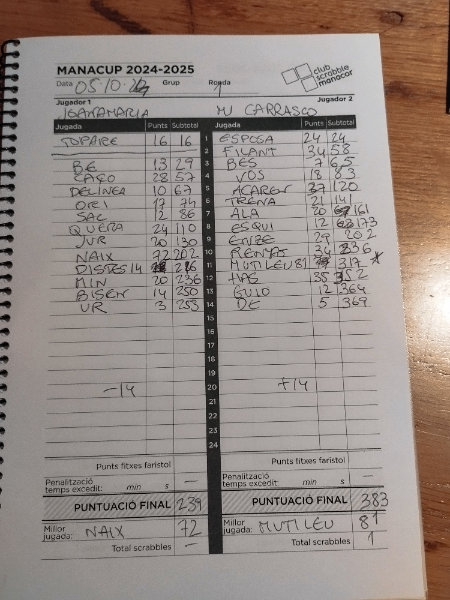 MANACUP 2024-2025
club scrabble manacor
Data 05·10·24 Grup Ronda 1
Jugador 1 Jugador 2
MJ CARRASCO
Jugada Punts Subtotal Jugada Punts Subtotal
TOPAIRE 16 16 1 ESPOSA 24 24
2 FILANT 34 58
BE 13 29 3 BES 7 65
CAÇO 28 57 4 VOS 18 83
DELINEA 10 67 5 ACAREN 37 120
ORI 17 74 6 TRENA 21 141
SAC 12 86 7 ALA 20 161
QUERA 24 110 8 ESQUI 12 173
JUR 20 130 9 ENZE 29 202
NAIX 72 202 10 34 236
14 216 11 MUTILEU 81 317 *
MIN 20 236 12 HAS 35 352
BISEN 14 250 13 GUIO 12 364
UR 3 253 14 DE 5 369
15
16
17
18
19
-14 20 +14
21
22
23
24
Punts fitxes faristol Punts fitxes faristol
Penalització temps excedit: min s — Penalització temps excedit: min s —
PUNTUACIÓ FINAL 239 PUNTUACIÓ FINAL 383
Millor jugada: NAIX 72 Millor jugada: MUTILEU 81
Total scrabbles — Total scrabbles 1